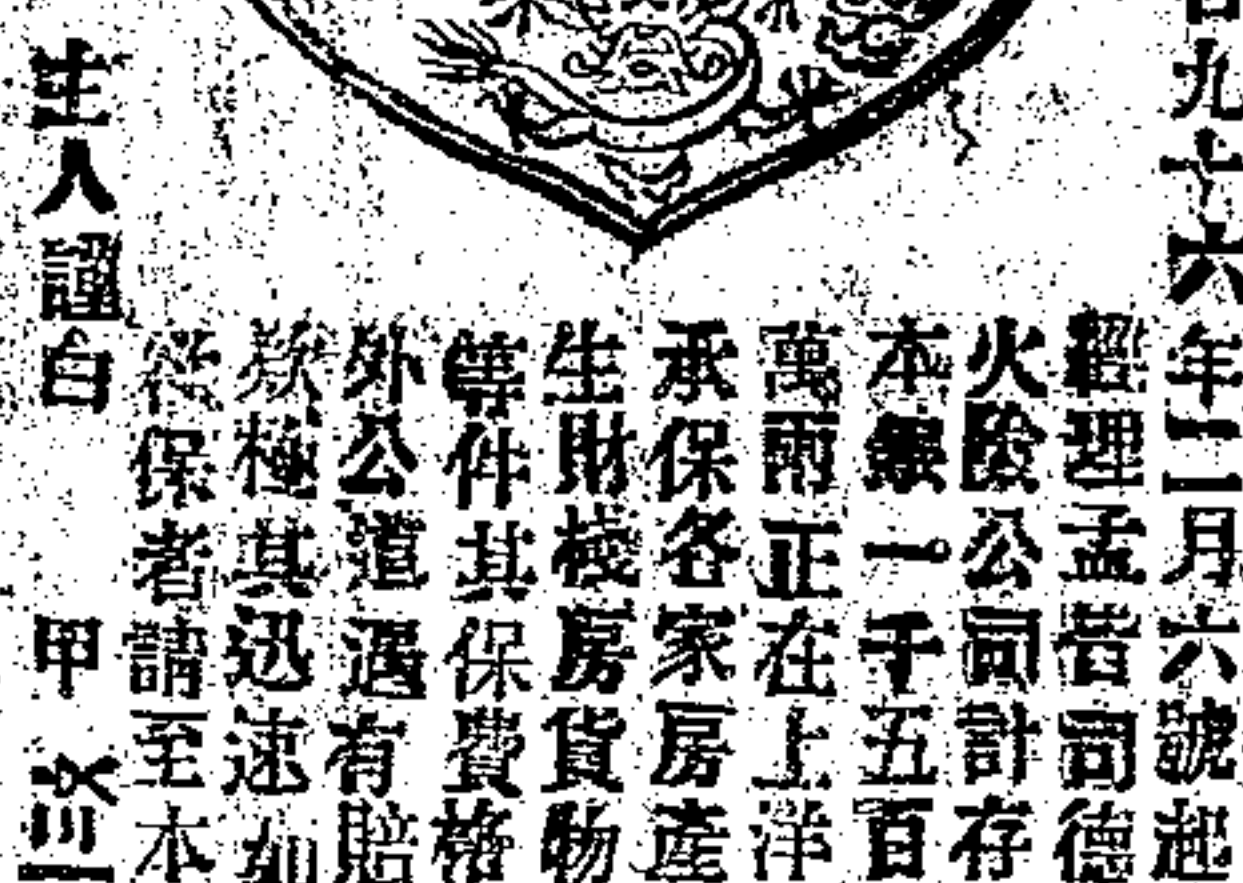 九十六年二月六號起
經理孟晳司德
火險公司計存
本銀一千五百
萬兩正在上洋
承保各家房產
生財棧房貨物
等件其保費格
外公道遇有賠
欵極其迅速如
保者請至本
主人謹白 甲